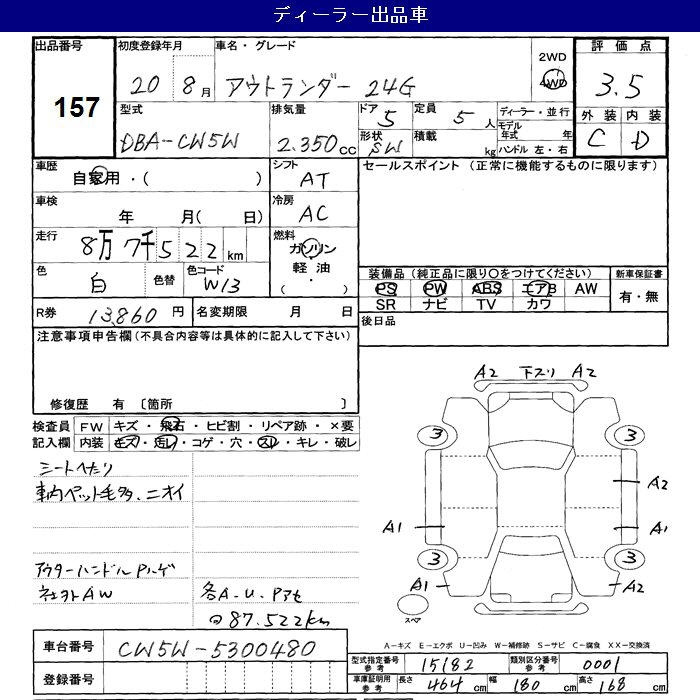 ディーラー出品車
出品番号 157
初度登録年月 20 8月
車名・グレード アウトランダー 24G
2WD 4WD
評価点 3.5
外装 内装
C D
型式 DBA-CW5W
排気量 2.350cc
ドア 5
形状 SW
定員 5人
積載 kg
ディーラー・並行
モデル年式 年
ハンドル 左・右
車歴 自家用・( )
シフト AT
セールスポイント (正常に機能するものに限ります)
車検 年 月( 日)
冷房 AC
走行 8万7千522km
燃料 ガソリン 軽油 ( ・ )
色 白 色替 色コード W13
装備品 (純正品に限り○をつけてください)
新車保証書
PS PW ABS エアB AW 有・無
SR ナビ TV カワ
R券 13,860円 名変期限 月 日
後日品
注意事項申告欄(不具合内容等は具体的に記入して下さい)
修復歴 有 〔箇所 〕
検査員記入欄
FW キズ・飛石・ヒビ割・リペア跡・×要
内装 キズ・汚レ・コゲ・穴・スレ・キレ・破レ
シートへたり
車内ペット毛多、ニオイ
アウターハンドルPハゲ
社外AW
各A.U.Pアセ
87.522km
A2 下スリ A2
3 3
A2
A1 A1
3 3
A1 A2
スペア
A-キズ E-エクボ U-凹み W-補修跡 S-サビ C-腐食 XX-交換済
車台番号 CW5W-5300480
登録番号
型式指定番号 参考 15182 類別区分番号 参考 0001
車庫証明用 参考 長さ 464cm 幅 180cm 高さ 168cm